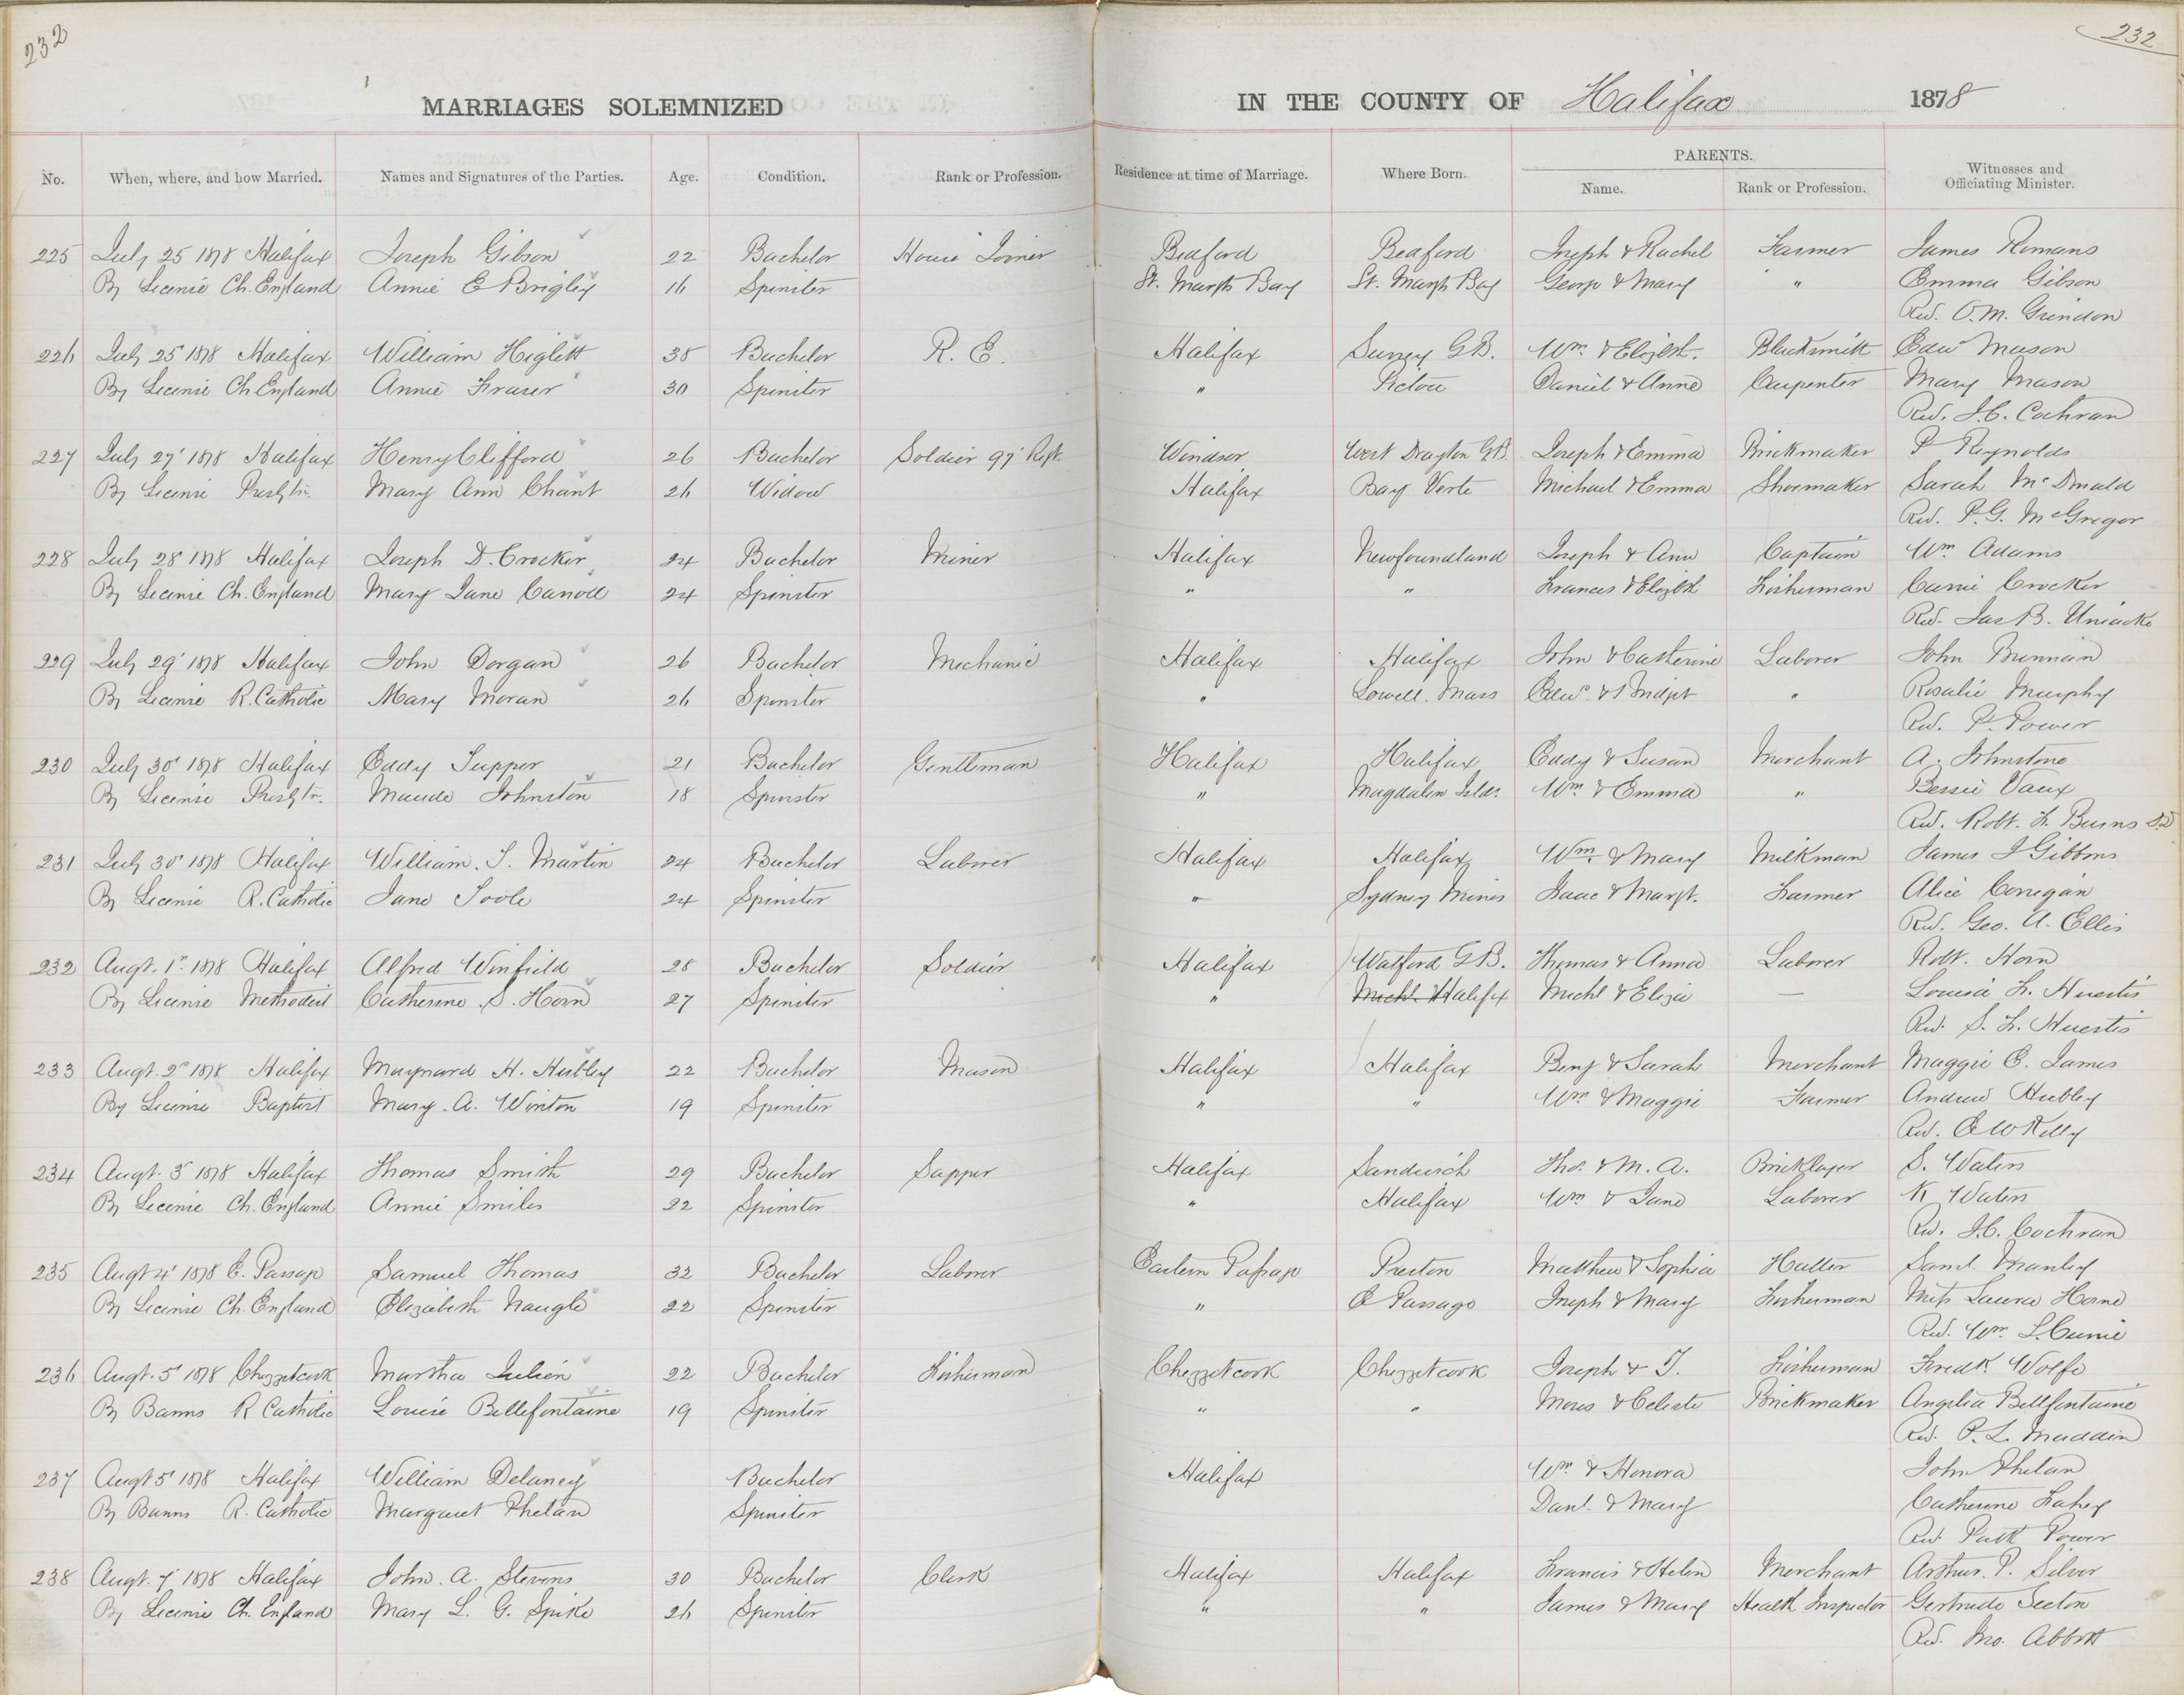 232
232
MARRIAGES SOLEMNIZED IN THE COUNTY OF Halifax 1878
No. When, where, and how Married. Names and Signatures of the Parties. Age. Condition. Rank or Profession. Residence at time of Marriage. Where Born. PARENTS. Name. Rank or Profession. Witnesses and Officiating Minister.
225 July 25 1878 Halifax Joseph Gibson 22 Bachelor House Joiner Bedford Bedford Joseph & Rachel Farmer James Romans
By License Ch. England Annie E Brigley 16 Spinster St. Margts Bay St. Margts Bay George & Mary " Emma Gibson
Rev. O. M. Grindon
226 July 25 1878 Halifax William Higlett 38 Bachelor R. E. Halifax Surrey G.B. Wm. & Elizbth. Blacksmith Edwd Mason
By License Ch. England Annie Fraser 30 Spinster " Pictou Daniel & Anne Carpenter Mary Mason
Rev. J. C. Cochran
227 July 27 1878 Halifax Henry Clifford 26 Bachelor Soldier 97 Regt. Windsor West Drayton G.B. Joseph & Emma Brickmaker P Reynolds
By License Presbytn. Mary Ann Chant 26 Widow Halifax Bay Verte Michael & Emma Shoemaker Sarah McDonald
Rev. P. G. McGregor
228 July 28 1878 Halifax Joseph D. Crocker 24 Bachelor Miner Halifax Newfoundland Joseph & Ann Captain Wm Adams
By License Ch. England Mary Jane Carroll 24 Spinster " " Frances & Elizbth Fisherman Carrie Crocker
Rev. Jas B. Uniacke
229 July 29 1878 Halifax John Dorgan 26 Bachelor Mechanic Halifax Halifax John & Catherine Laborer John Brennan
By License R. Catholic Mary Moran 26 Spinster " Lowell. Mass Edwd. & Bridgt " Rosalie Murphy
Rev. P. Power
230 July 30 1878 Halifax Eddy Tupper 21 Bachelor Gentleman Halifax Halifax Eddy & Susan Merchant A. Johnstone
By License Presbytn. Maude Johnston 18 Spinster " Magdalen Islds. Wm & Emma " Bessie Vaux
Rev. Robt. F. Burns D.D
231 July 30 1878 Halifax William. T. Martin 24 Bachelor Laborer Halifax Halifax Wm. & Mary Milkman James J Gibbons
By License R. Catholic Jane Toole 24 Spinster " Sydney Mines Isaac & Margt. Farmer Alice Corregan
Rev. Geo. A. Ellis
232 Augt. 1st 1878 Halifax Alfred Winfield 28 Bachelor Soldier Halifax Watford G.B. Thomas & Anna Laborer Robt. Horn
By License Methodist Catherine. S. Horn 27 Spinster " Michl. Halifx Michl & Eliza — Louisa F. Huestis
Rev. S. F. Huestis
233 Augt. 2 1878 Halifax Maynard H. Hubley 22 Bachelor Mason Halifax Halifax Benj & Sarah Merchant Maggie E. James
By License Baptist Mary. A. Winton 19 Spinster " " Wm & Maggie Farmer Andrew Hubley
Rev. E W Kelly
234 Augt. 3 1878 Halifax Thomas Smith 29 Bachelor Sapper Halifax Sandwich Thos. & M. A. Bricklayer S. Waters
By License Ch. England Annie Smiles 22 Spinster " Halifax Wm & Jane Laborer K Waters
Rev. J. C. Cochran
235 Augt 4 1878 E. Passage Samuel Thomas 32 Bachelor Laborer Eastern Passage Preston Matthew & Sophia Hatter Saml. Manley
By License Ch. England Elizabeth Naugle 22 Spinster " E Passage Joseph & Mary Fisherman Miss Laura Horne
Rev. Wm. L. Currie
236 Augt. 5 1878 Chezzetcook Martha Julien 22 Bachelor Fisherman Chezzetcook Chezzetcook Joseph & T. Fisherman Fredk Wolfe
By Banns R Catholic Louise Bellefontaine 19 Spinster " " Moses & Celeste Brickmaker Angelia Bellfontaine
Rev. P. L. Madden
237 Augt 5 1878 Halifax William Delaney Bachelor Halifax Wm & Honora John Phelan
By Banns R. Catholic Margaret Phelan Spinster Danl. & Mary Catherine Fahey
Rev. Patk Power
238 Augt. 7 1878 Halifax John. A. Stevens 30 Bachelor Clerk Halifax Halifax Francis & Helen Merchant Arthur. P. Silver
By License Ch. England Mary L. G. Spike 26 Spinster " " James & Mary Health Inspector Gertrude Seeton
Rev. Jno. Abbott